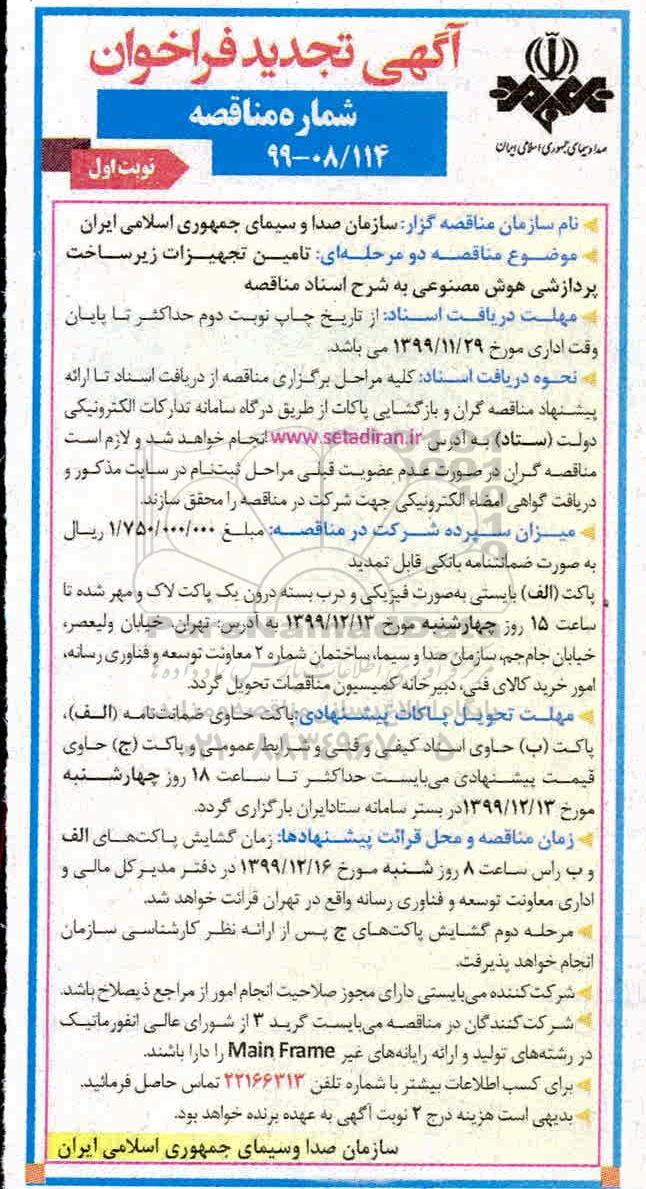 آگهی تجدید فراخوان
شماره مناقصه
۹۹-۰۸/۱۱۴
نوبت اول
صدا و سیمای جمهوری اسلامی ایران
نام سازمان مناقصه گزار: سازمان صدا و سیمای جمهوری اسلامی ایران
موضوع مناقصه دو مرحله‌ای: تامین تجهیزات زیرساخت
پردازشی هوش مصنوعی به شرح اسناد مناقصه
مهلت دریافت اسناد: از تاریخ چاپ نوبت دوم حداکثر تا پایان
وقت اداری مورخ ۱۳۹۹/۱۱/۲۹ می باشد.
نحوه دریافت اسناد: کلیه مراحل برگزاری مناقصه از دریافت اسناد تا ارائه
پیشنهاد مناقصه گران و بازگشایی پاکات از طریق درگاه سامانه تدارکات الکترونیکی
دولت (ستاد) به آدرس www.setadiran.ir انجام خواهد شد و لازم است
مناقصه گران در صورت عدم عضویت قبلی مراحل ثبت‌نام در سایت مذکور و
دریافت گواهی امضاء الکترونیکی جهت شرکت در مناقصه را محقق سازند.
میزان سپرده شرکت در مناقصه: مبلغ ۱/۷۵۰/۰۰۰/۰۰۰ ریال
به صورت ضمانتنامه بانکی قابل تمدید
پاکت (الف) بایستی به‌صورت فیزیکی و درب بسته درون یک پاکت لاک و مهر شده تا
ساعت ۱۵ روز چهارشنبه مورخ ۱۳۹۹/۱۲/۱۳ به آدرس: تهران، خیابان ولیعصر،
خیابان جام‌جم، سازمان صدا و سیما، ساختمان شماره ۲ معاونت توسعه و فناوری رسانه،
امور خرید کالای فنی، دبیرخانه کمیسیون مناقصات تحویل گردد.
مهلت تحویل پاکات پیشنهادی: پاکت حاوی ضمانتنامه (الف)،
پاکت (ب) حاوی اسناد کیفی و فنی و شرایط عمومی و پاکت (ج) حاوی
قیمت پیشنهادی می‌بایست حداکثر تا ساعت ۱۸ روز چهارشنبه
مورخ ۱۳۹۹/۱۲/۱۳ در بستر سامانه ستادایران بارگزاری گردد.
زمان مناقصه و محل قرائت پیشنهادها: زمان گشایش پاکت‌های الف
و ب راس ساعت ۸ روز شنبه مورخ ۱۳۹۹/۱۲/۱۶ در دفتر مدیرکل مالی و
اداری معاونت توسعه و فناوری رسانه واقع در تهران قرائت خواهد شد.
مرحله دوم گشایش پاکت‌های ج پس از ارائه نظر کارشناسی سازمان
انجام خواهد پذیرفت.
شرکت‌کننده می‌بایستی دارای مجوز صلاحیت انجام امور از مراجع ذیصلاح باشد.
شرکت‌کنندگان در مناقصه می‌بایست گرید ۳ از شورای عالی انفورماتیک
در رشته‌های تولید و ارائه رایانه‌های غیر Main Frame را دارا باشند.
برای کسب اطلاعات بیشتر با شماره تلفن ۲۲۱۶۶۳۱۳ تماس حاصل فرمائید.
بدیهی است هزینه درج ۲ نوبت آگهی به عهده برنده خواهد بود.
سازمان صدا وسیمای جمهوری اسلامی ایران